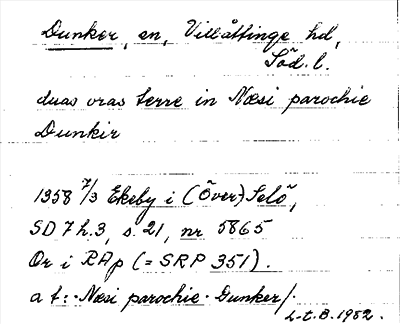 Dunker, en, Villåttinge hd,
Söd. l.
duas oras terre in Næsi parochie
Dunkir
1358 7/3 Ekeby i (Över)Selö,
SD 7 h.3, s. 21, nr 5865
Or i RAp (= SRP 351).
a t: Næsi parochie Dunker/.
L-t.B. 1982.